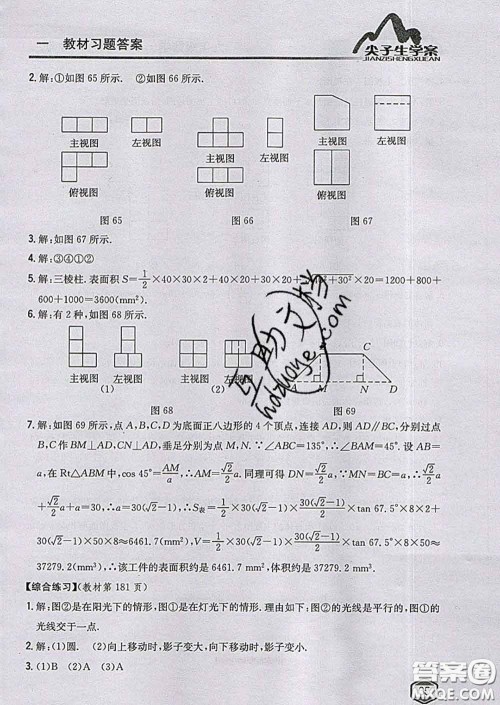 一 教材习题答案
尖子生学案
JIANZISHENGXUEAN
2. 解：①如图 65 所示. ②如图 66 所示.
主视图 左视图 主视图 左视图 主视图 左视图
俯视图 俯视图 俯视图
图 65 图 66 图 67
3. 解：如图 67 所示.
4. 解：③④①②
5. 解：三棱柱. 表面积 S=1/2×40×30×2+40×20+30×20+
+600+1000=3600(mm²).
6. 解：有 2 种，如图 68 所示.
(1) (2)
C
A M N D
图 68 图 69
7. 解：如图 69 所示，点 A、B、C、D 为底面正八边形的 4 个顶点，连接 AD，则 AD∥BC，分别过点
B、C 作 BM⊥AD，CN⊥AD，垂足分别为点 M、N. ∵∠ABC=135°，∴∠BAM=45°. 设 AB=
a，在 Rt△ABM 中，cos 45°=AM/a，∴AM=√2/2 a. 同理可得 DN=√2/2 a. ∵MN=BC=a，∴
√2/2 a+√2/2 a+a=30，∴a=30(√2-1)，∴S表=1/2×30(√2-1)×1/2×30(√2-1)×1/2×tan 67.5°×
8×2+30(√2-1)×50×8≈6461.7(mm²)，V=1/2×30(√2-1)×30(√2-1)×1/2×tan 67.5°×
50×8≈37279.2(mm³)，∴该工件的表面积约是 6461.7mm²，体积约是 37279.2 mm³.
【综合练习】(教材第 181 页)
1. 解：图②是在阳光下的情形，图①是在灯光下的情形. 理由如下：图②的光线是平行的，图①的
光线交于一点.
2. 解：(1)圆. (2)向上移动时，影子变大，向下移动时，影子变小.
3. (1)B (2)A (3)A
互助文档
hdzuoye.com
答案圈
MXQE.COM